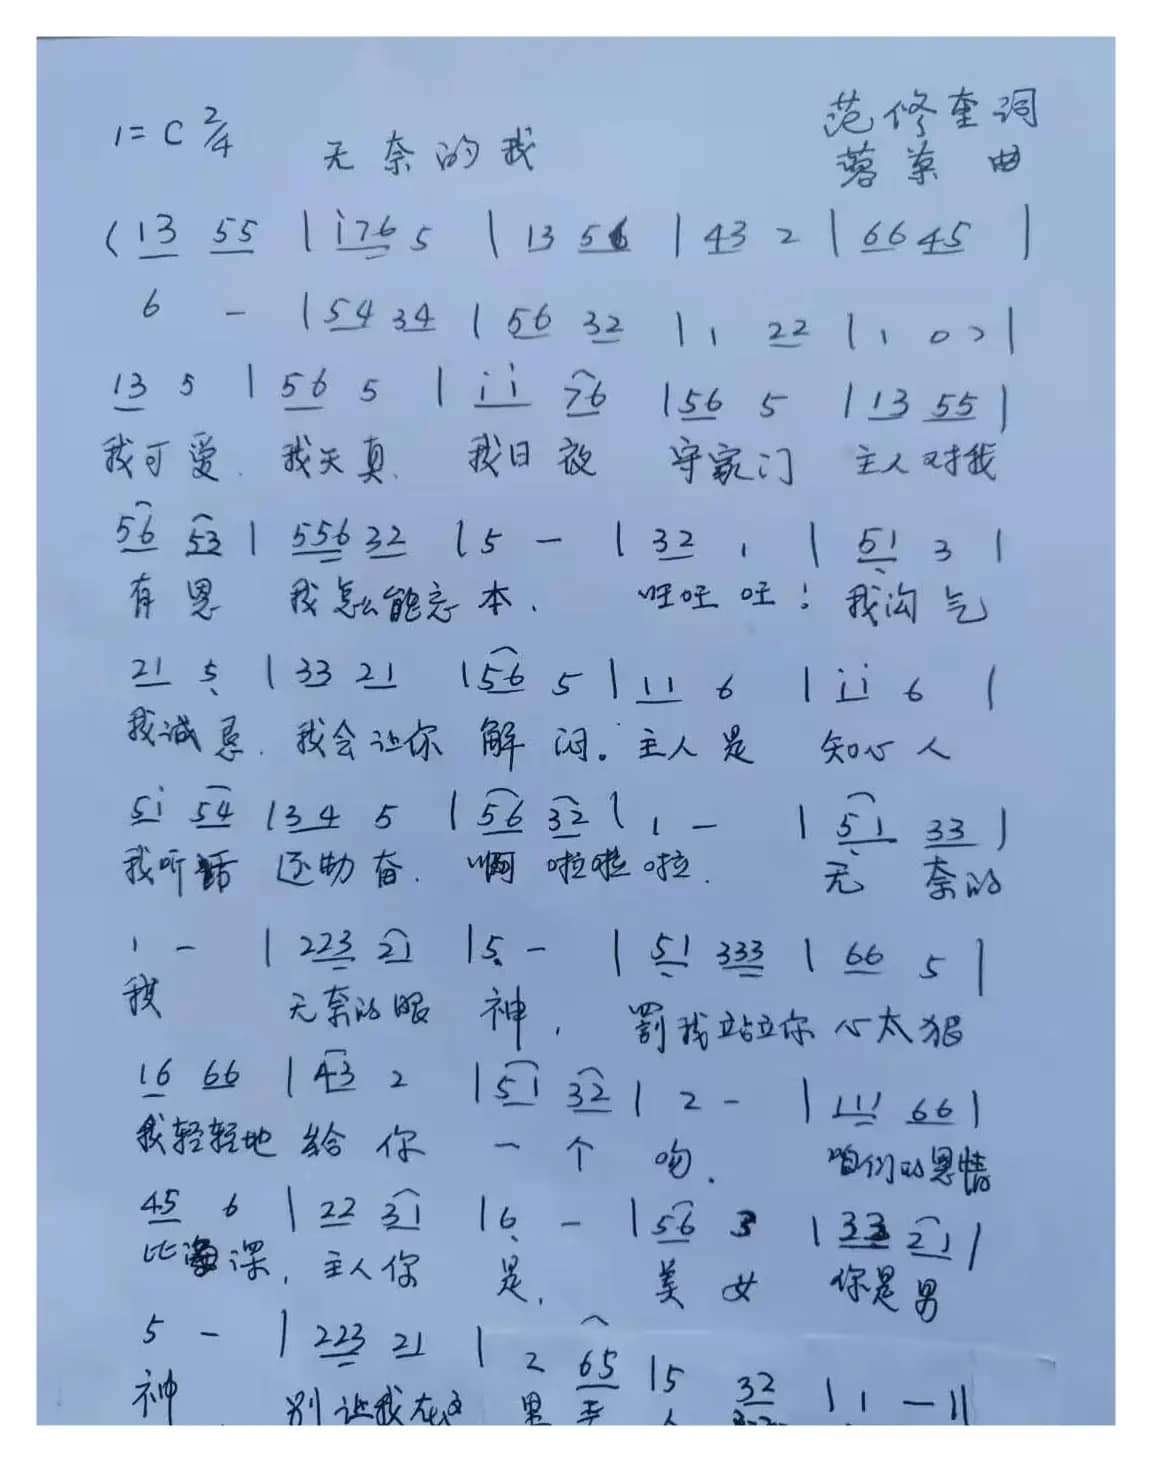 1=C 2/4 无奈的我 范修奎词
曲
(13 55 | i76 5 | 13 56 | 43 2 | 66 45 |
6 - | 54 34 | 56 32 | 1 22 | 1 0 ) |
13 5 | 56 5 | i i 76 | 56 5 | 13 55 |
我可爱. 我天真. 我日夜 守家门 主人对我
56 53 | 556 32 | 5 - | 32 1 | 51 3 |
有恩 我怎么能忘本. 旺旺旺! 我淘气
21 5 | 33 21 | 56 5 | 11 6 | i i 6 |
我诚恳. 我会让你 解闷。主人是 知心人
5i 54 | 34 5 | 56 32 | 1 - | 51 33 |
我听话 还勤奋. 啊 啦啦啦. 无奈的
1 - | 223 21 | 5 - | 51 333 | 66 5 |
我 无奈的眼神, 罚我站立你心太狠
16 66 | 43 2 | 51 32 | 2 - | 111 66 |
我轻轻地 给你 一个吻. 咱们的恩情
45 6 | 22 31 | 6 - | 56 3 | 33 21 |
比海深, 主人你 是, 美女 你是男
5 - | 223 21 | 2 65 | 5 32 | 1 - ||
神 别让我在这里